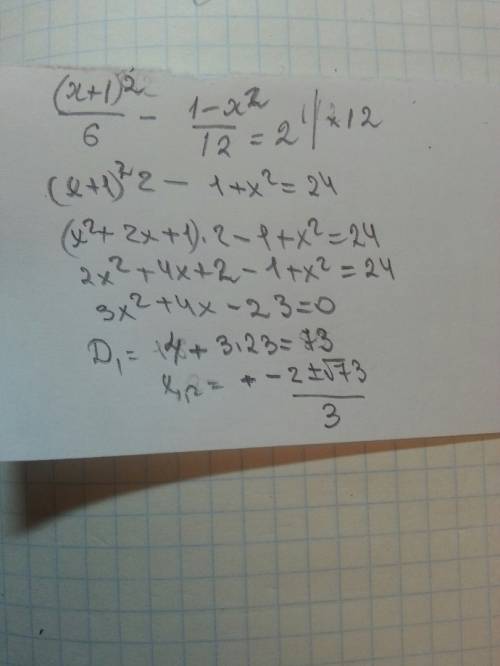 (x+1)²/6 - 1-x²/12 = 2 | ×12
(x+1)² 2 - 1+x² = 24
(x²+2x+1)·2-1+x²=24
2x²+4x+2-1+x²=24
3x²+4x-23=0
D₁= 4+3·23=73
x₁,₂= -2±√73/3